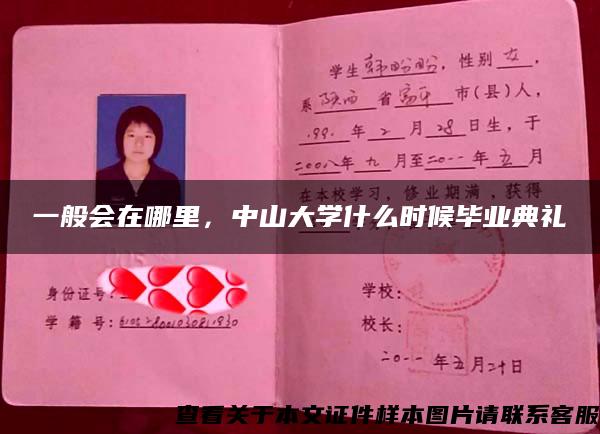 学生韩盼盼，性别女，
系陕西省富平市(县)人，
199 年2月28日生，于
二00八年九月至二0一一年五月
在本校学习，修业期满，获得
一般会在哪里，中山大学什么时候毕业典礼
身份证号:
学籍号:
学校:
校长:
二0一一年五月二十日
查看关于本文证件样本图片请联系客服